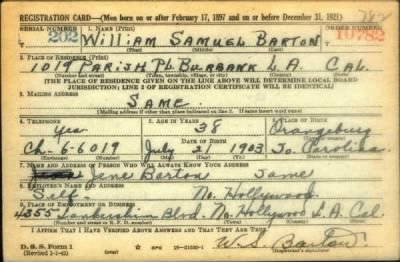 REGISTRATION CARD—(Men born on or after February 17, 1897 and on or before December 31, 1921)
SERIAL NUMBER 1. NAME (Print) ORDER NUMBER
202 William Samuel Barton 10782
(First) (Middle) (Last)
2. PLACE OF RESIDENCE (Print)
1019 Parish Pl. Burbank L.A. Cal.
(Number and street) (Town, township, village, or city) (County) (State)
[THE PLACE OF RESIDENCE GIVEN ON THE LINE ABOVE WILL DETERMINE LOCAL BOARD
JURISDICTION; LINE 2 OF REGISTRATION CERTIFICATE WILL BE IDENTICAL]
3. MAILING ADDRESS
Same
[Mailing address if other than place indicated on line 2. If same insert word same]
4. TELEPHONE 5. AGE IN YEARS 6. PLACE OF BIRTH
Yes 38 Orangeburg
DATE OF BIRTH (Town or county)
Ch-6-6019 July 21 1903 So Carolina
(Exchange) (Number) (Mo.) (Day) (Yr.) (State or country)
7. NAME AND ADDRESS OF PERSON WHO WILL ALWAYS KNOW YOUR ADDRESS
Jene Barton Same
8. EMPLOYER'S NAME AND ADDRESS
Self- No. Hollywood
9. PLACE OF EMPLOYMENT OR BUSINESS
4355 Lankershim Blvd. No. Hollywood L.A. Cal.
(Number and street or R. F. D. number) (Town) (County) (State)
I AFFIRM THAT I HAVE VERIFIED ABOVE ANSWERS AND THAT THEY ARE TRUE.
D. S. S. Form 1
(Revised 1-1-42) GPO 16-21630-1 W.S. Barton